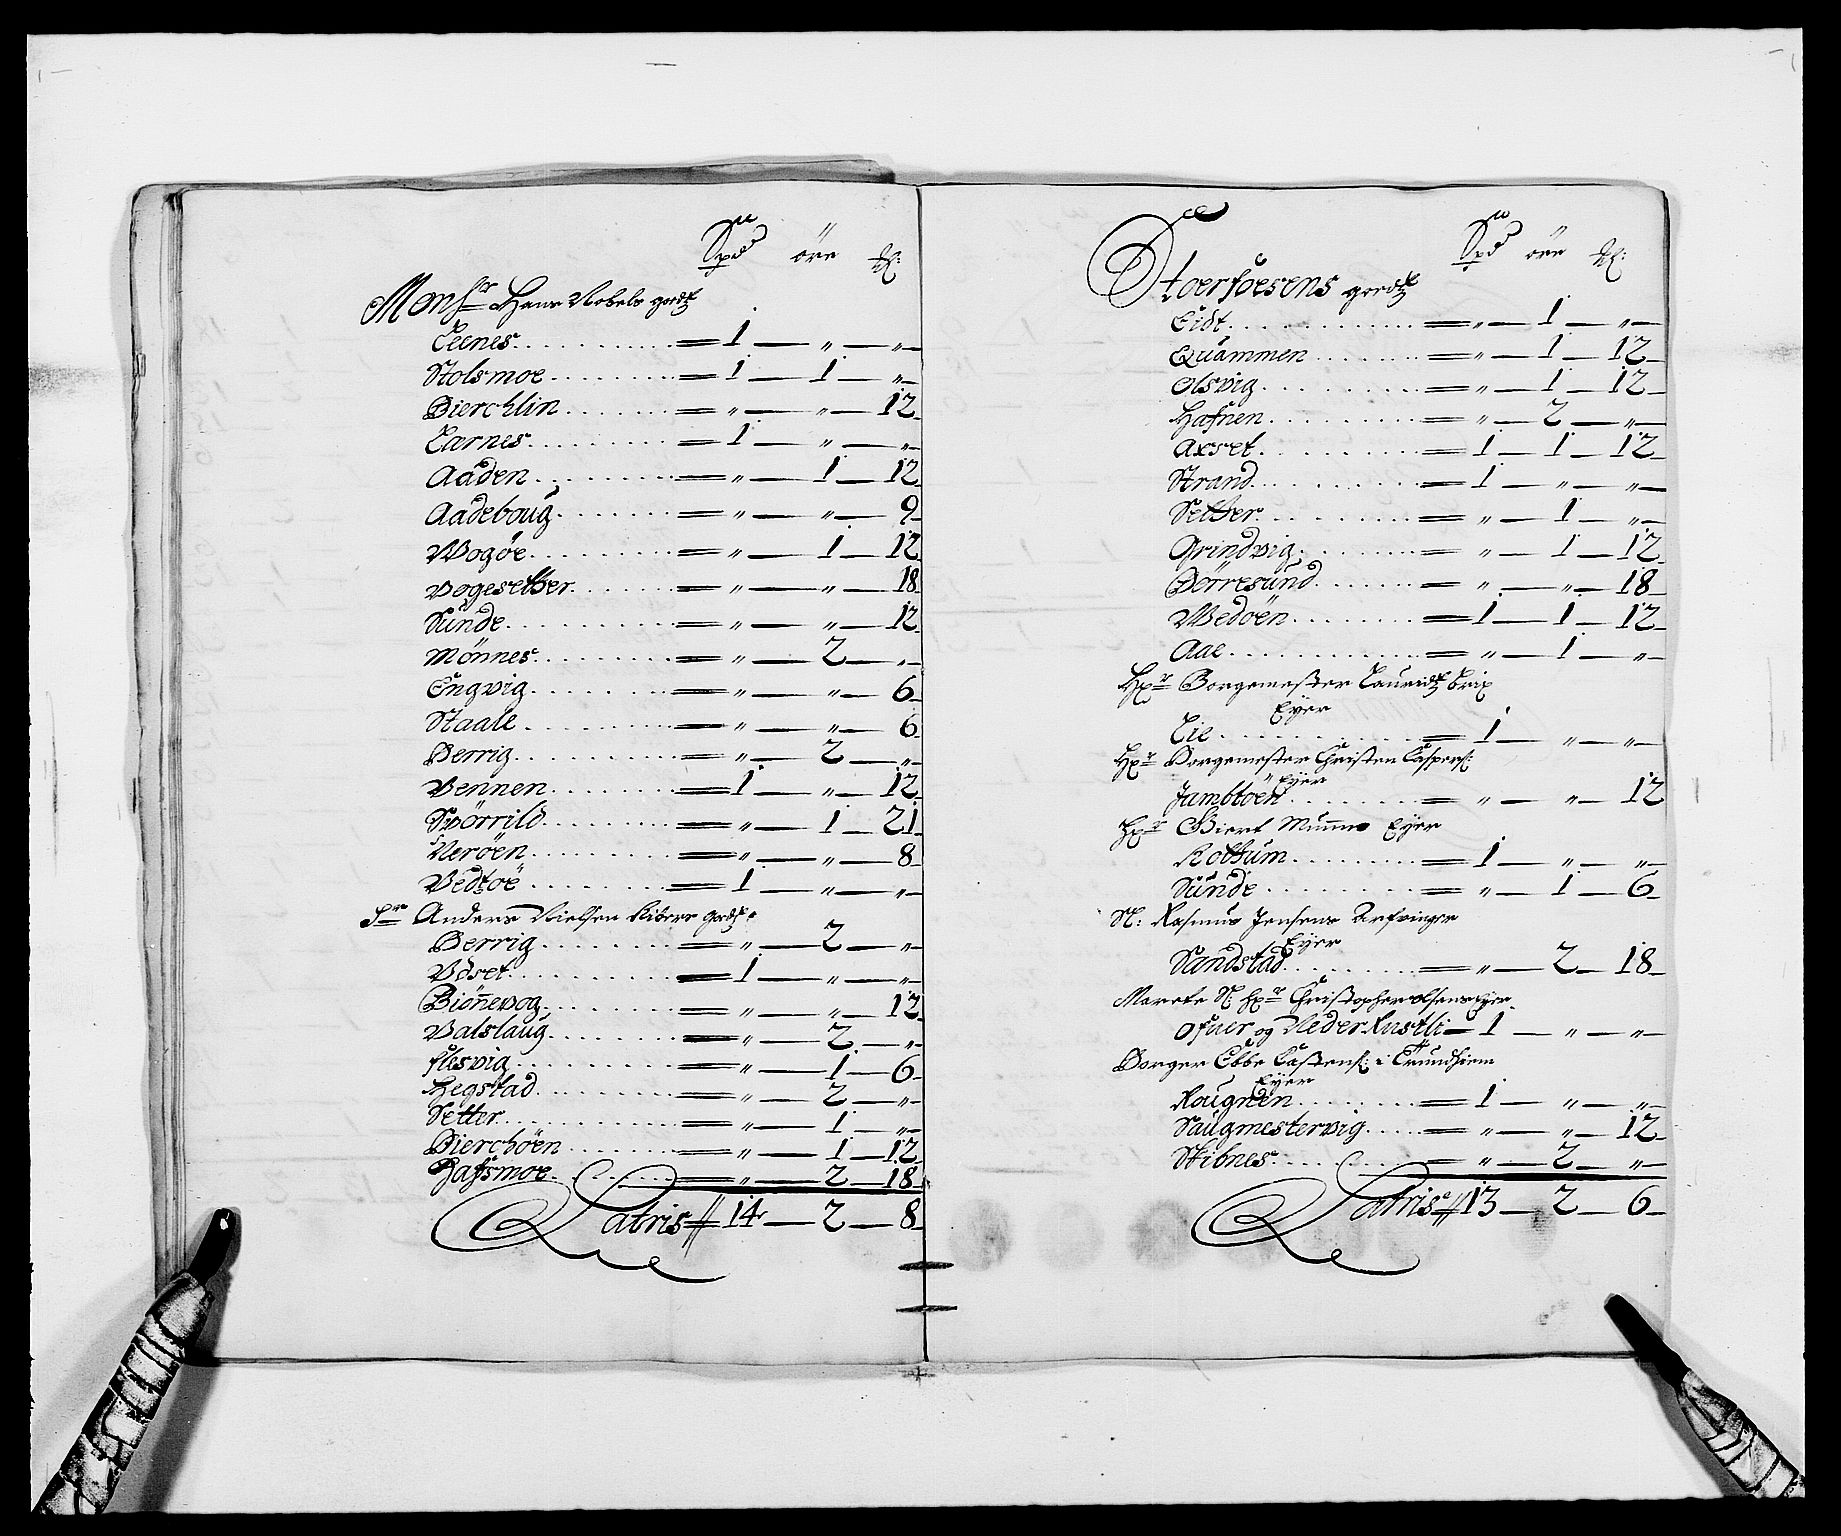 Spd öre
Monsr Hans Nobels godtz
Leenes = 1 — " — "
Stolsmoe = 1 — 1 — "
Bierchlin = " — " — 12
Larnes = 1 — " — "
Aaden = " — 1 — 12
Aadeboug = " — " — 9
Wogöe = " — 1 — 12
Vogesether = " — " — 18
Sunde = " — " — 12
Mönnes = " — 2 — "
Engvig = " — " — 6
Staale = " — " — 6
Berrig = " — 2 — "
Vennen = 1 — " — 12
Spörrild = " — 1 — 21
Neröen = " — " — 8
Vedtöe = 1 — " — "
Sr Anders Nielsen godtz
Berrig = " — 2 — "
Vdset = 1 — " — "
Biönnevog = " — " — 12
Valslaug = " — 2 — "
Flesvig = " — 1 — 6
Hegstad = " — 2 — "
Setter = " — 1 — "
Bierchöen = " — 1 — 12
Hafsmoe = " — 2 — 18
Latris 14 — 2 — 8
Spd öre
Stoerfoesens godtz
Eidt = " — 1 — "
Quammen = " — 1 — 12
Olsvig = " — 1 — 12
Hafnen = " — 2 — "
Axset = 1 — 1 — 12
Strand = 1 — " — "
Sether = " — 1 — "
Grindvig = " — 1 — 12
Börresund = " — " — 18
Wedöen = 1 — 1 — 12
Aae = " — 1 — "
Hr Borgemester Lauridtz Brix
Eyer
Lie = 1 — " — "
Hr Borgemester Christen Caspers:
Eyer
Jambtöen = " — " — 12
Hr Giert Eyer
Rottum = 1 — " — "
Sunde = " — 1 — 6
Sl: Rasmus Jensens Arfvinger
Eyer
Sandstad = " — 2 — 18
Marete Sl: Hr Christopher olsens Eyer
Ofuer og Neder Kustli = 1 — " — "
Borger Ebbe Castens: i Trundhiem
Eyer
Rougnen = 1 — " — "
Saugmestervig = " — " — 12
Stibnes = " — 2 — "
Latris 13 — 2 — 6